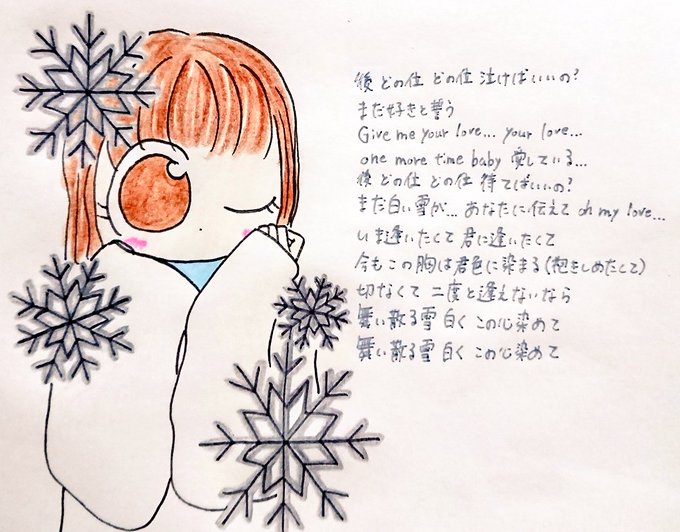 後 どの位 どの位 泣けばいいの?
まだ好きと誓う
Give me your love... your love...
one more time baby 愛している...
後 どの位 どの位 待てばいいの?
まだ白い雪が... あなたに伝えて oh my love...
いま逢いたくて 君に逢いたくて
今もこの胸は君色に染まる(抱きしめたくて)
切なくて 二度と逢えないなら
舞い散る雪 白く この心染めて
舞い散る雪 白く この心染めて